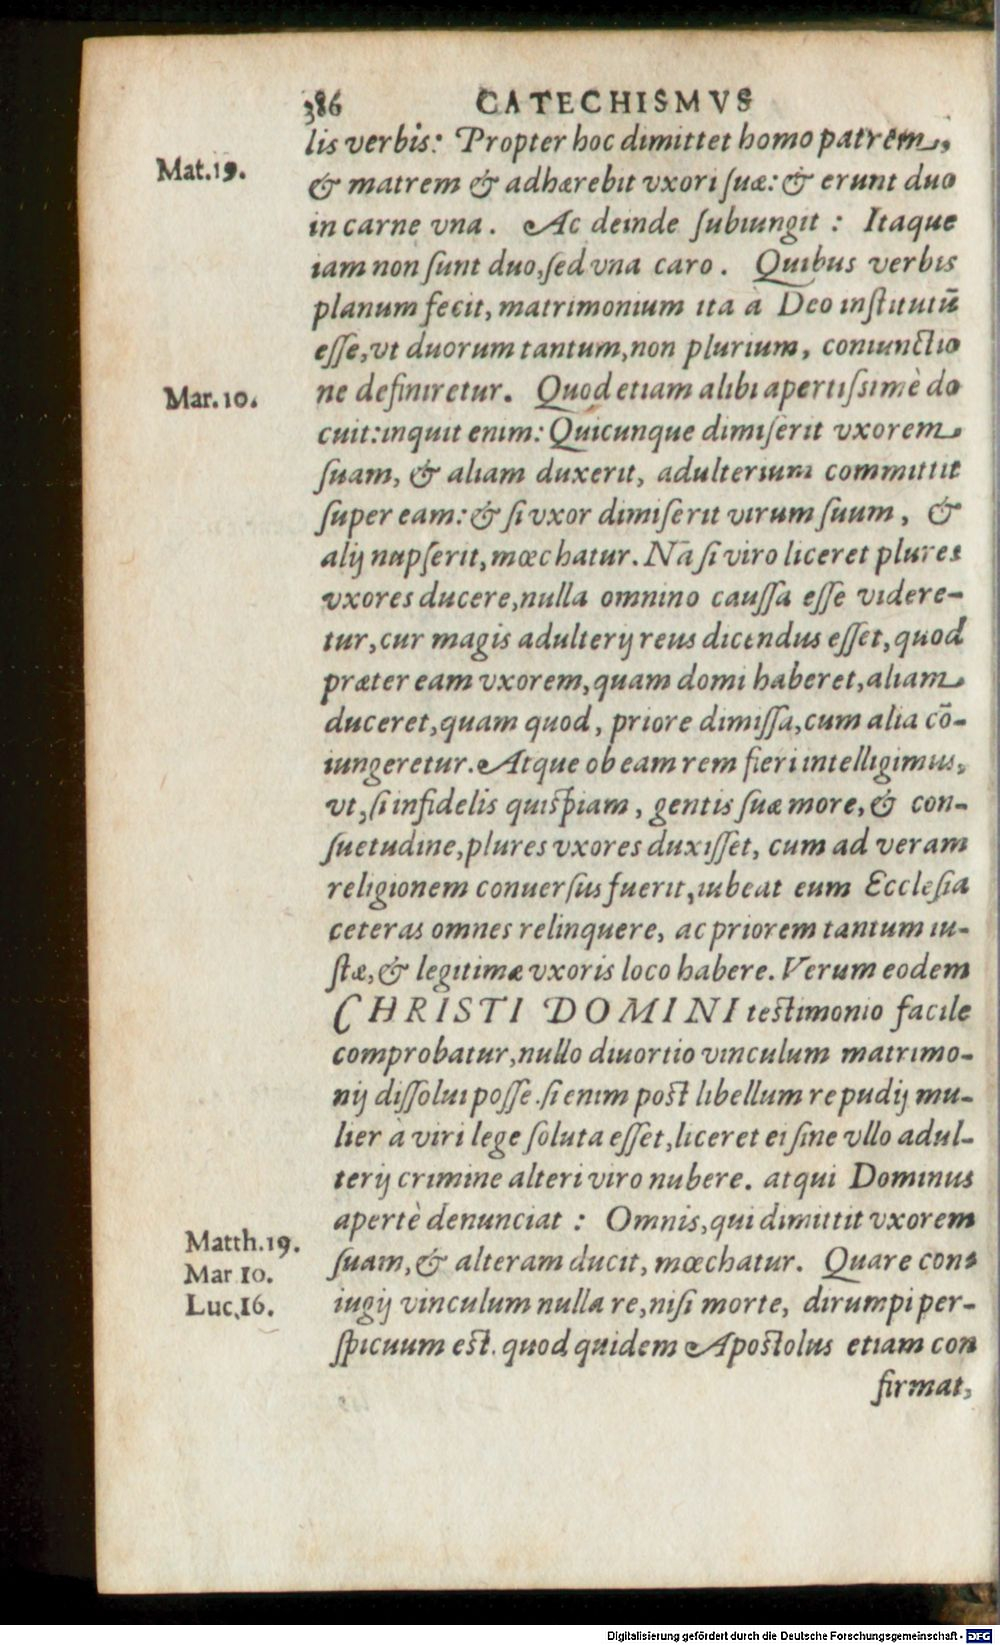 386 CATECHISMVS
lis verbis: Propter hoc dimittet homo patrem,
Mat.19.
& matrem & adhærebit vxori ſuæ: & erunt duo
in carne vna. Ac deinde ſubiungit : Itaque
iam non ſunt duo, ſed vna caro. Quibus verbis
planum fecit, matrimonium ita à Deo inſtitutū
eſſe, vt duorum tantum, non plurium, coniunctio
Mar.10.
ne definiretur. Quod etiam alibi apertiſsimè do
cuit: inquit enim: Quicunque dimiſerit vxorem
ſuam, & aliam duxerit, adulterium committit
ſuper eam: & ſi vxor dimiſerit virum ſuum, &
alij nupſerit, mœchatur. Nā ſi viro liceret plures
vxores ducere, nulla omnino cauſſa eſſe videre-
tur, cur magis adulterij reus dicendus eſſet, quod
præter eam vxorem, quam domi haberet, aliam
duceret, quam quod, priore dimiſſa, cum alia cō-
iungeretur. Atque ob eam rem fieri intelligimus,
vt, ſi infidelis quiſpiam, gentis ſuæ more, & con-
ſuetudine, plures vxores duxiſſet, cum ad veram
religionem conuerſus fuerit, iubeat eum Eccleſia
ceteras omnes relinquere, ac priorem tantum iu-
ſtæ, & legitimæ vxoris loco habere. Verum eodem
CHRISTI DOMINI teſtimonio facile
comprobatur, nullo diuortio vinculum matrimo-
nij diſſolui poſſe. ſi enim poſt libellum repudij mu-
lier à viri lege ſoluta eſſet, liceret ei ſine vllo adul-
terij crimine alteri viro nubere. atqui Dominus
apertè denunciat : Omnis, qui dimittit vxorem
Matth.19.
ſuam, & alteram ducit, mœchatur. Quare con-
Mar 10.
iugij vinculum nulla re, niſi morte, dirumpi per-
Luc.16.
ſpicuum eſt. quod quidem Apoſtolus etiam con
firmat,
Digitalisierung gefördert durch die Deutsche Forschungsgemeinschaft - DFG